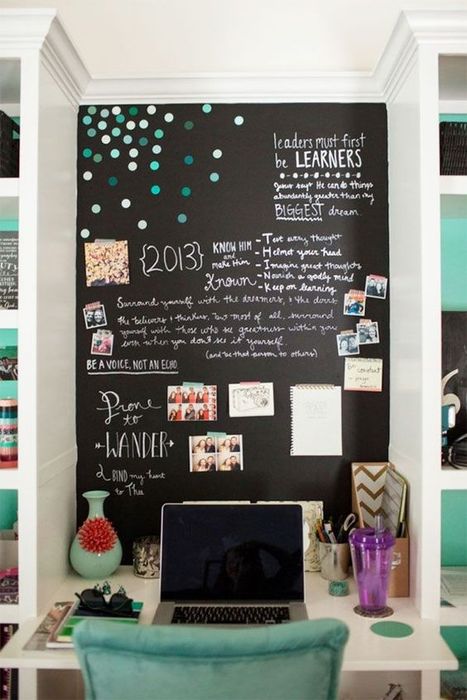 leaders must first
be LEARNERS
Jesus says He can do things
abundantly greater than my
BIGGEST dream.
{2013}
KNOW HIM
and make Him
Known
- Test every thought
- Helmet your head
- Imagine great thoughts
- Nourish a godly mind
- Keep on learning
Surround yourself with the dreamers, & the doers
the believers & thinkers, but most of all, surround
yourself with those who see greatness within you
even when you don't see it yourself.
(and be that person to others)
BE A VOICE, NOT AN ECHO.
be constant
in prayer
Prone
to
WANDER
BIND my heart
to Thee